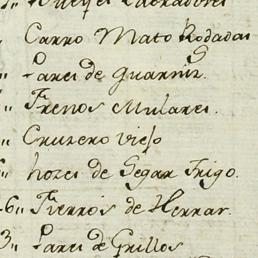 Bueyes Labradores
Carro Mato Rodadas
Pares de Guarnis
Frenos Mulares
Cruzero viejo
hozes de Segar Trigo.
6,, Fierros de Herrar.
3,, Pares de Grillos